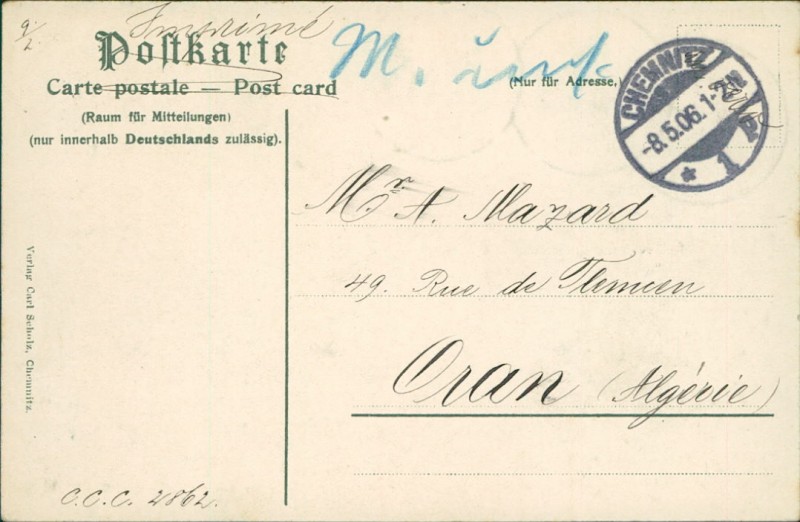 9/2 Imprimé
Postkarte
Carte postale — Post card
(Nur für Adresse.)
(Raum für Mitteilungen)
(nur innerhalb Deutschlands zulässig).
CHEMNITZ
-8.5.06.1-2N.
* 1 P
Mr. A. Mazard
49. Rue de Tlemcen
Oran (Algérie)
Verlag Carl Scholz, Chemnitz.
C.C.C. 2862.